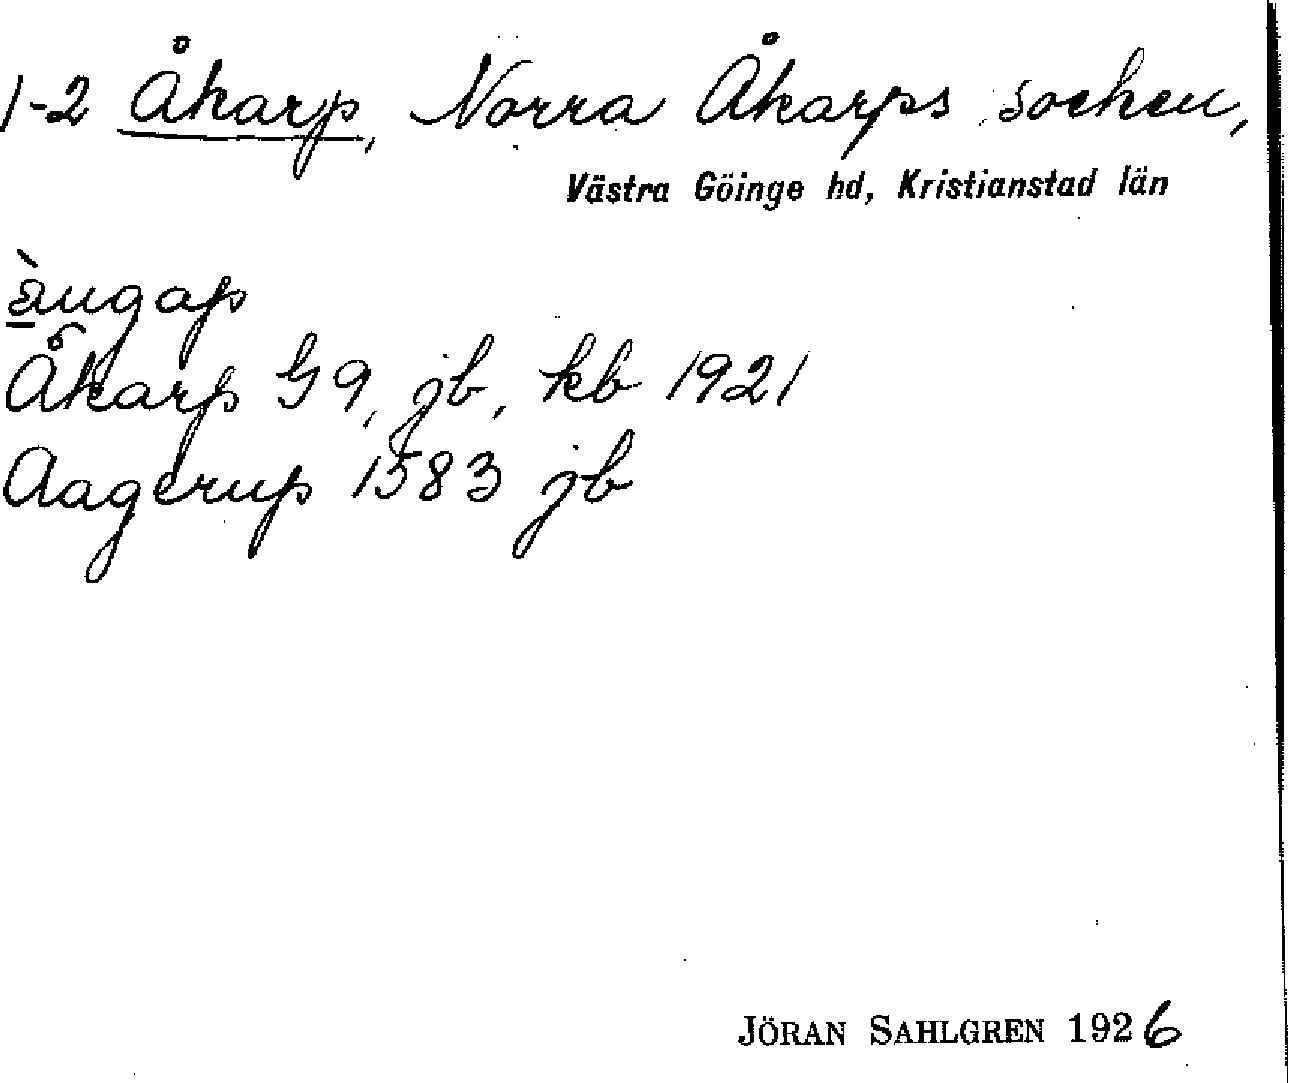 1-2 Åkarp, Norra Åkarps socken,
Västra Göinge hd, Kristianstad län
Åkarp G 9, jb, kb 1921
Aagerup 1583 jb
JÖRAN SAHLGREN 1926